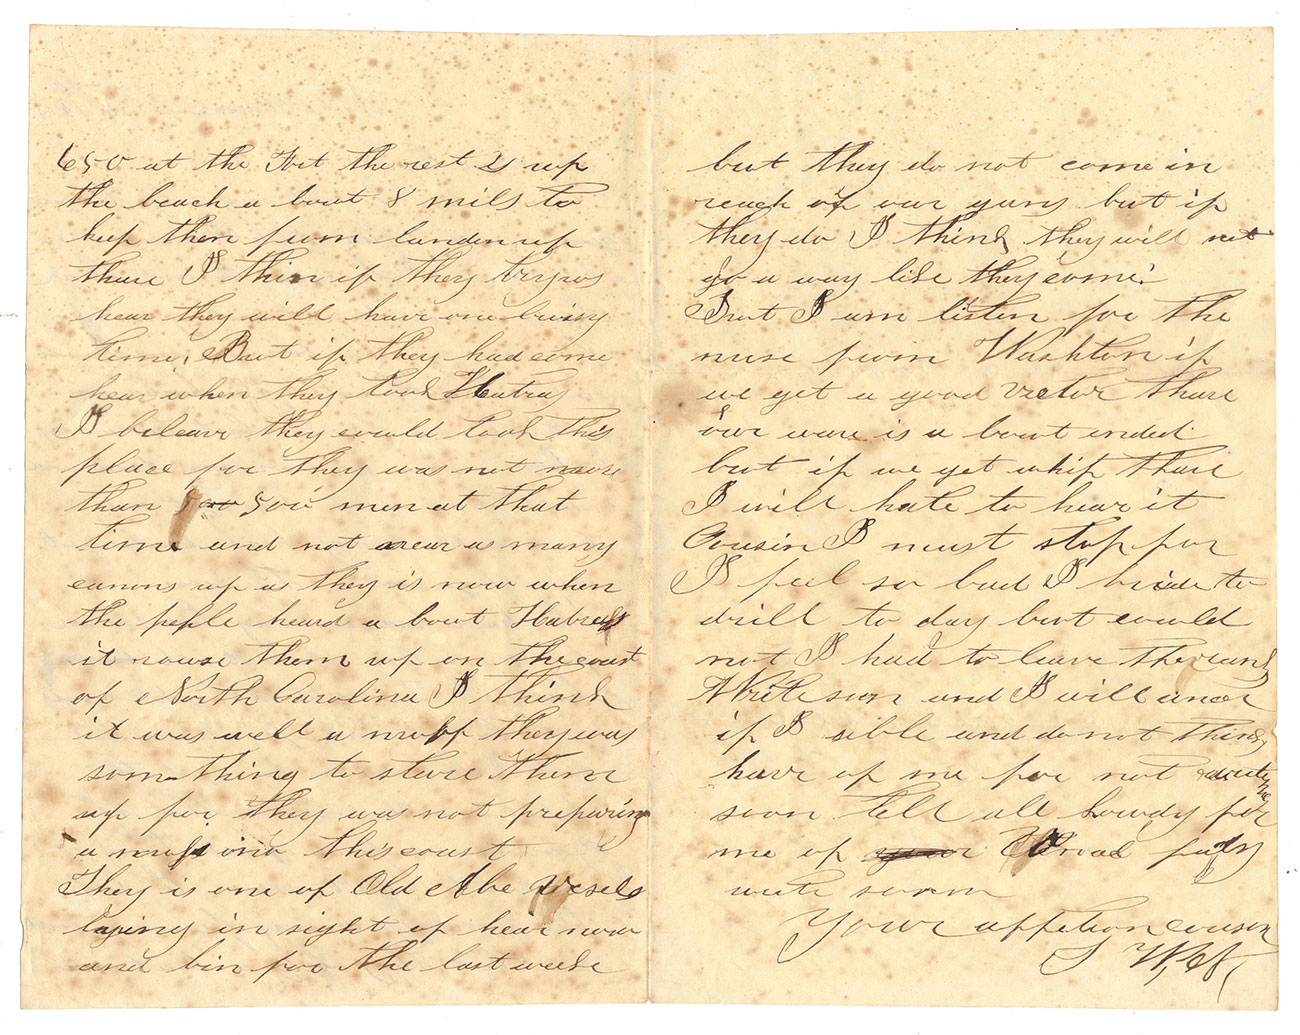 650 at the Fort the rest is up
the beach a bout 8 mils to
keep them from landen up
thare I think if they trys us
hear they will have one bissy
time, But if they had come
hear when they took Hatras
I beleave they could took this
place for they was not more
than 500 men at that
time and not near as many
canons up as they is now when
the peple heard a bout Hatras
it rouse them up on the coast
of North Carolina I think
it was well a nuff they was
som thing to stere them
up for they was not prepairing
a nuff on this coast
They is one of Old Abe Vesels
laying in sight of hear now
and bin for the last weeke
but they do not come in
reach of our guns but if
they do I think they will not
go a way like they come.
But I am listen for the
nuse from Washton if
we get a good victor thare
our ware is a bout ended
but if we get whip thare
I will hate to hear it
Cousin I must stop for
I feel so bad I tride to
drill to day but could
not I had to leave the ranks
Write soon and I will anser
if I sible and do not think
hard of me for not writing
soon tell all howdy for
me of
write soon
Your affetion cousin
S W